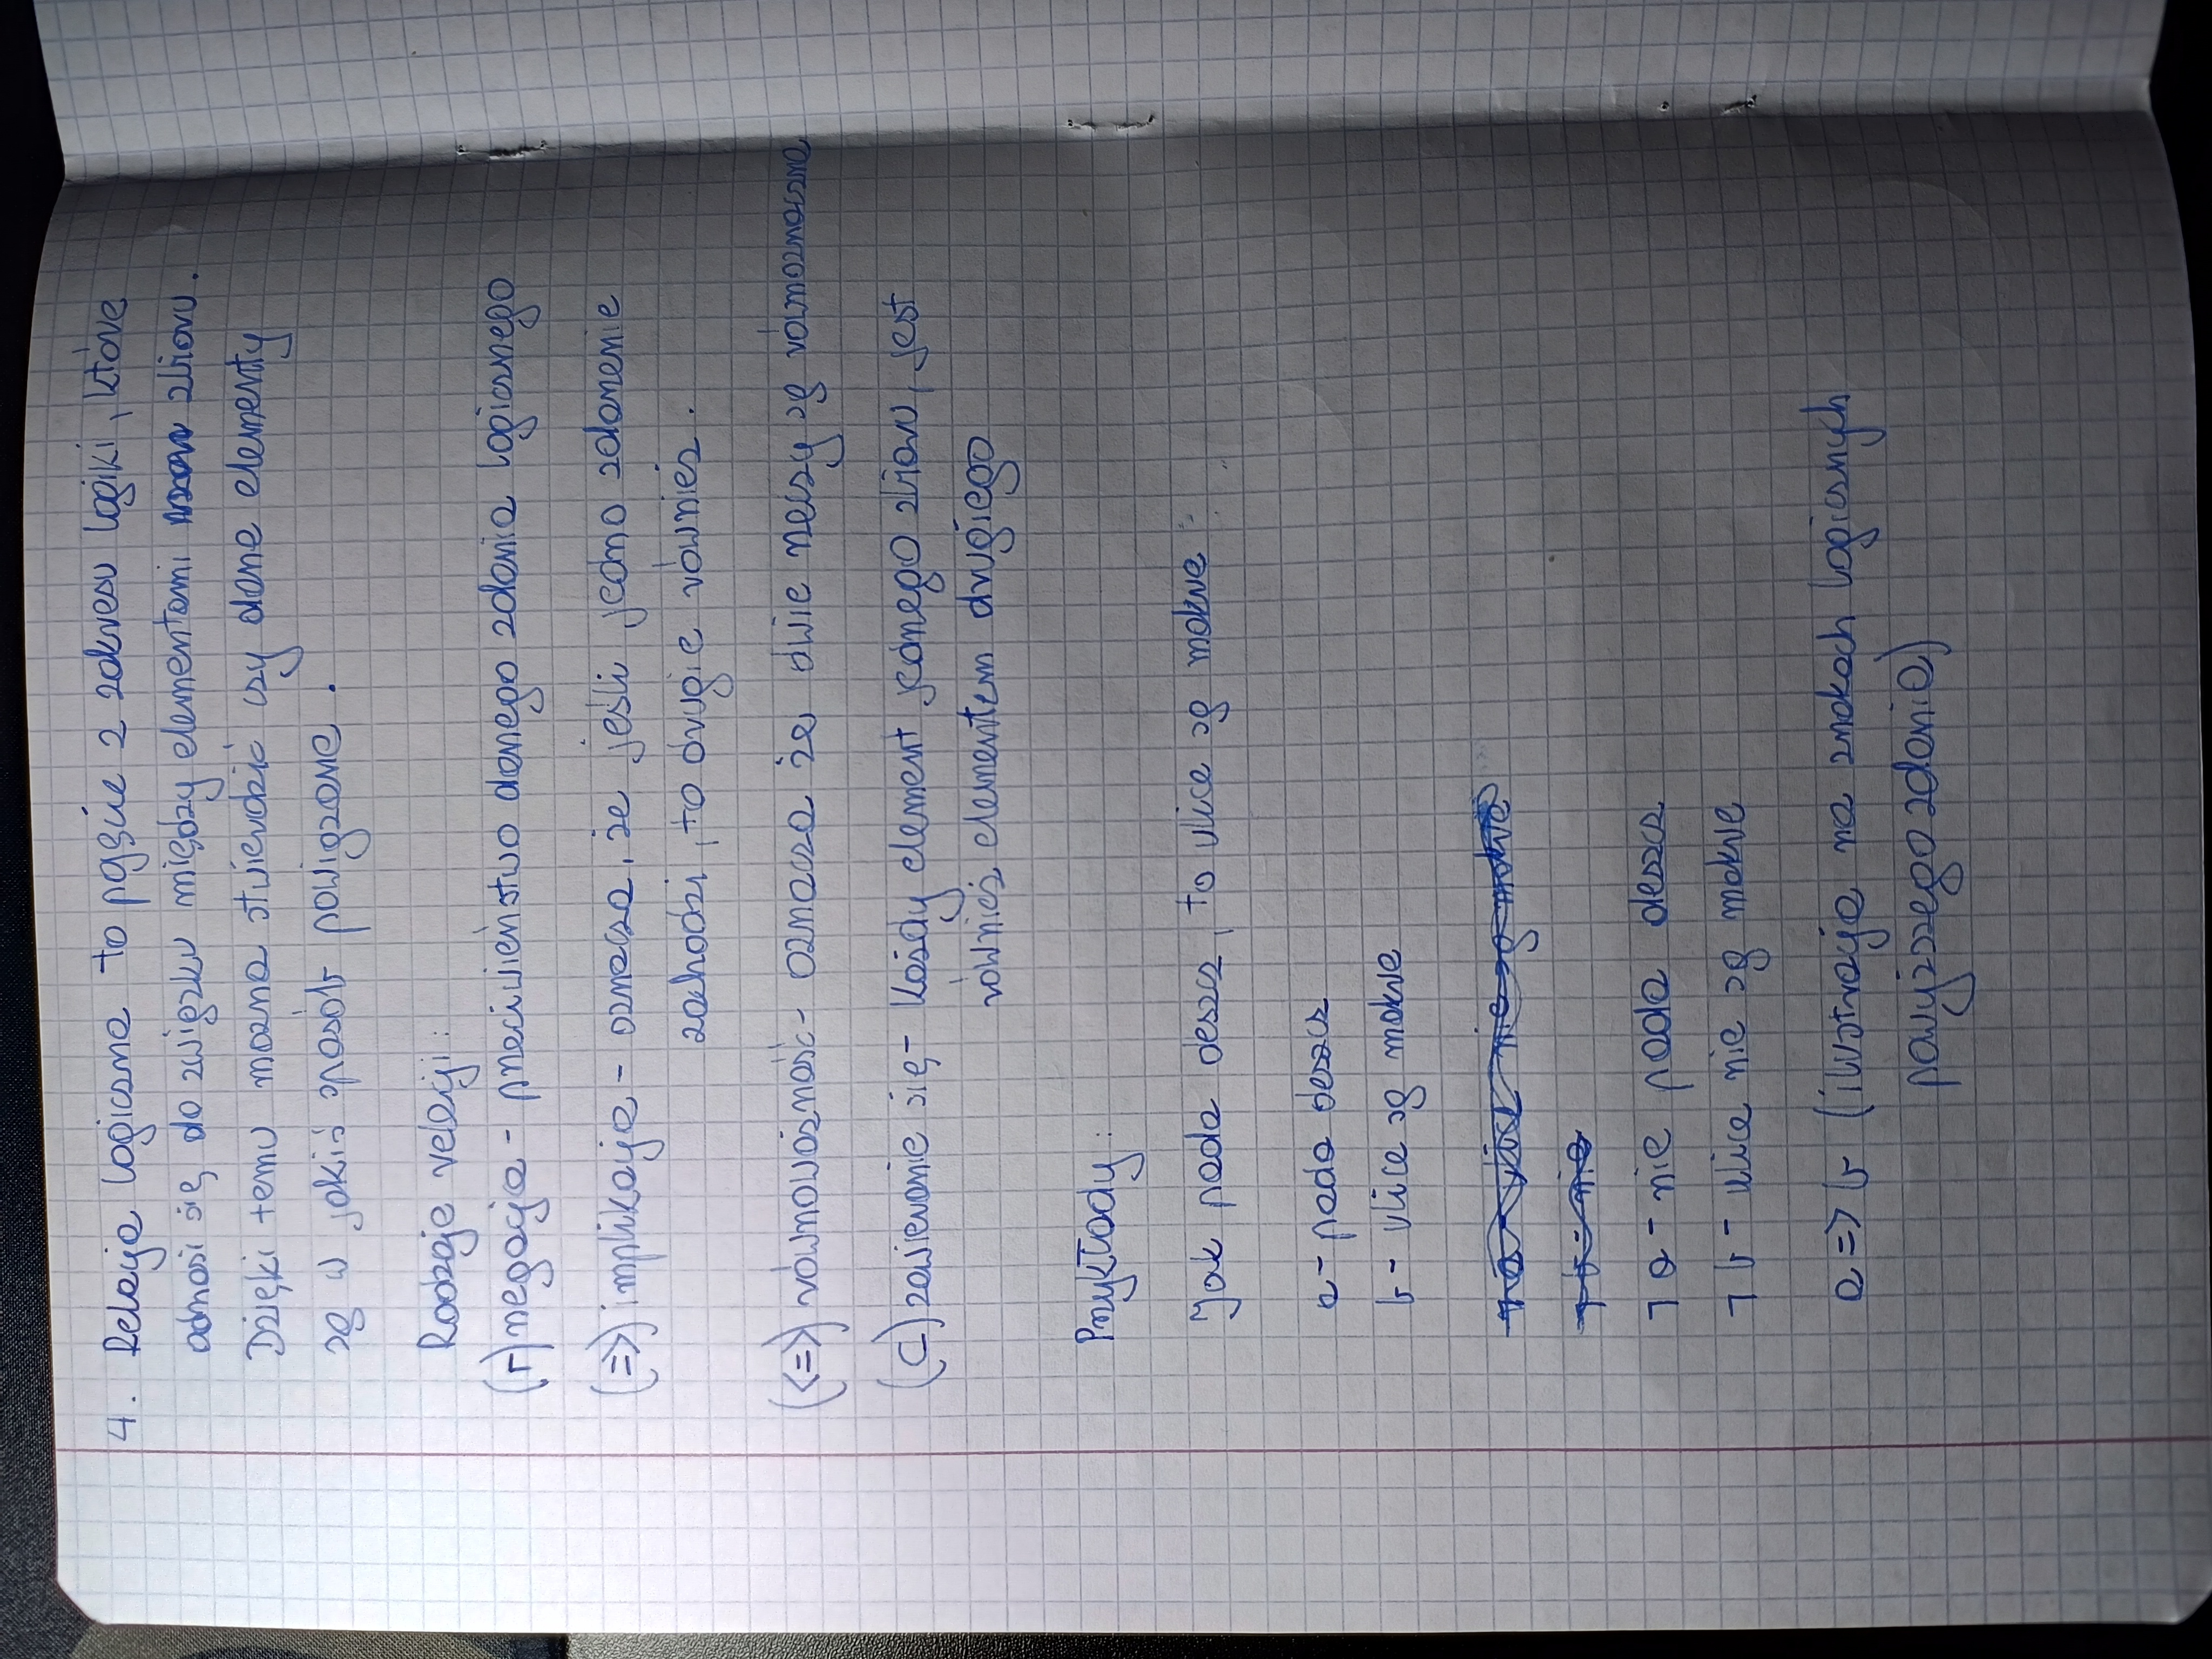 4. Relacja logiczna to pojęcie z zakresu logiki, które
odnosi się do związku między elementami zbioru.
Dzięki temu można stwierdzić czy dane elementy
są w jakiś sposób powiązane.
Rodzaje relacji:
(┌) negacja - przeciwieństwo danego zdania logicznego
(=>) implikacja - oznacza, że jeśli jedno zdanenie
zachodzi, to drugie również.
(<=>) równoważność - oznacza że dwie rzeczy są równoznaczne
(⊂) zawieranie się - Każdy element jednego zbioru, jest
również elementem drugiego
Przykłady:
Jak pada deszcz, to ulice są mokre:
a - pada deszcz
b - ulice są mokre
¬a - ulice nie są mokre
¬b - nie
¬a - nie pada deszcz
¬b - ulice nie są mokre
a => b (ilustracja na znakach logicznych
powyższego zdania)